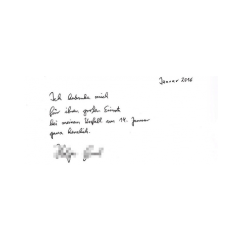 Januar 2016
Ich bedanke mich
für ihren großen Einsatz
bei meinem Unfall am 14. Januar
ganz herzlich.